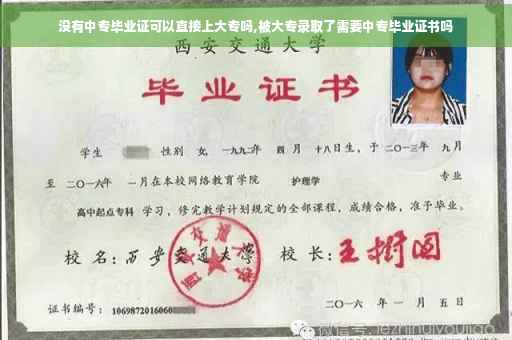 没有中专毕业证可以直接上大专吗,被大专录取了需要中专毕业证书吗
西安交通大学
毕业证书
学生 性别 女, 一九九二年 四月 十八日生, 于 二〇一三年 九月
至 二〇一六年 一月在本校网络教育学院 护理学 专业
高中起点专科 学习, 修完教学计划规定的全部课程, 成绩合格, 准予毕业。
校名: 西安交通大学 校长: 王树国
西安交通大学
证书编号: 1069872016060
二〇一六 年 一 月 五 日
微信号: jezhihuiyoujiao